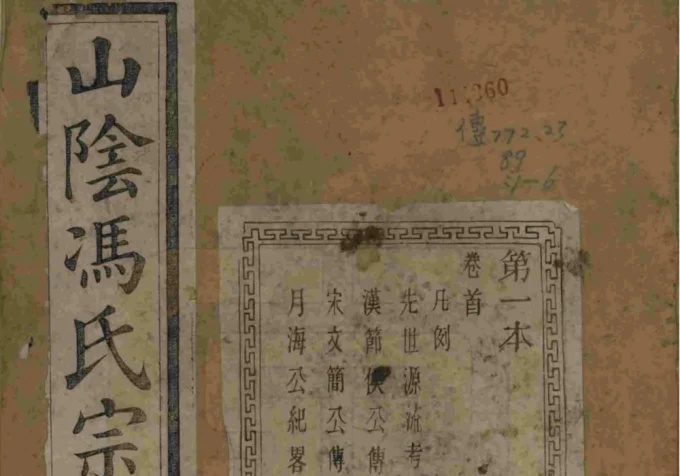 山陰馮氏宗
第一本
卷首
凡例
先世源流考
漢節侯公傳
宋文簡公傳
月海公紀畧
傳772.23
89